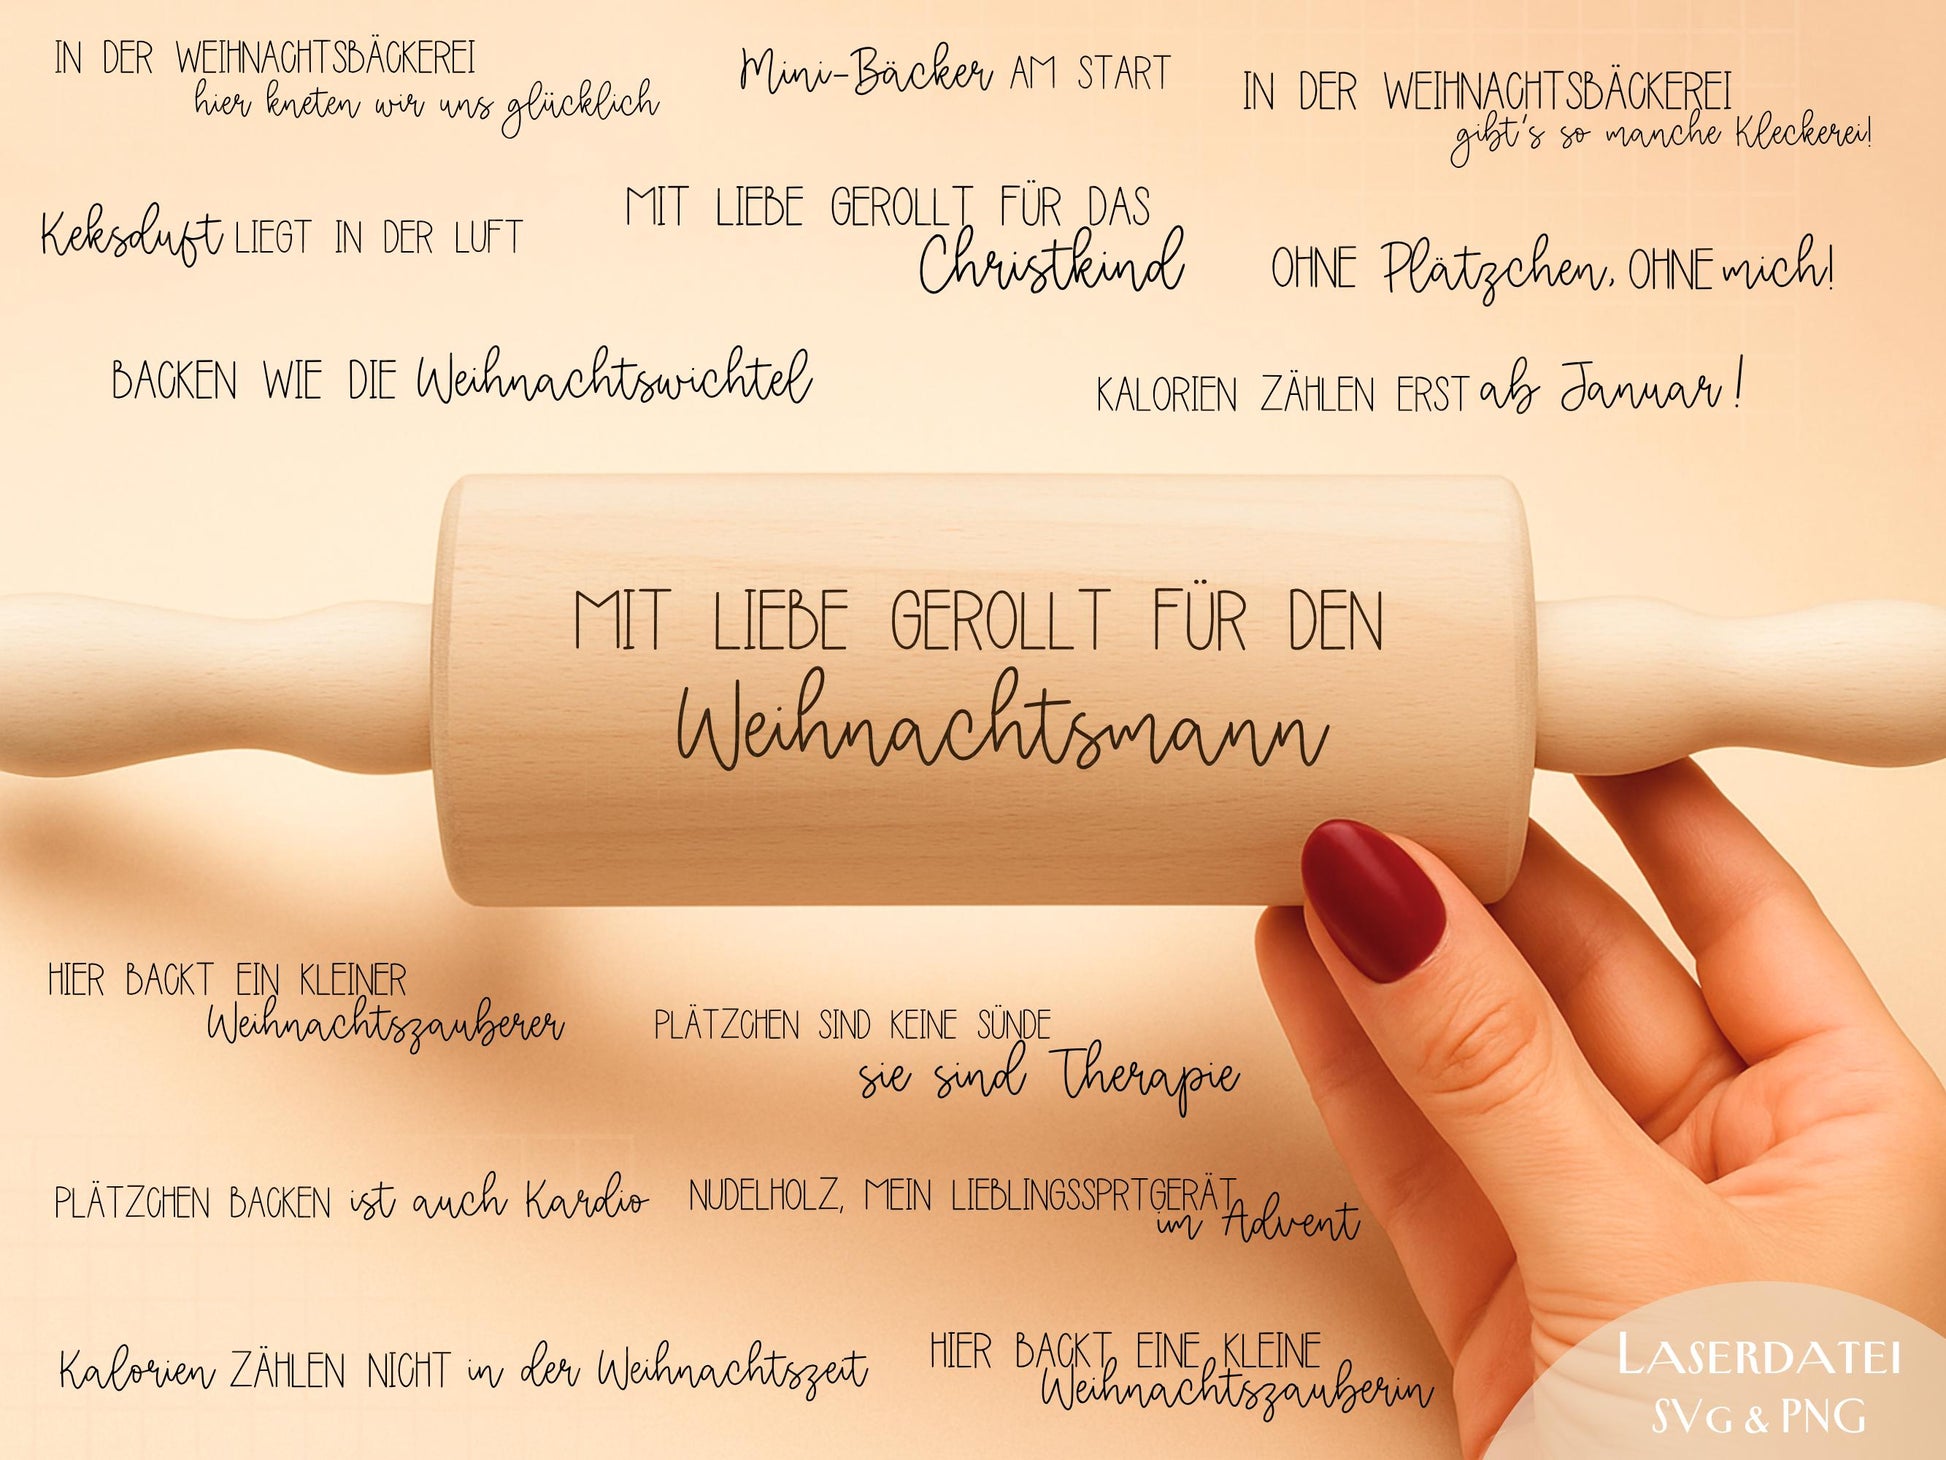 IN DER WEIHNACHTSBÄCKEREI
hier kneten wir uns glücklich
Mini-Bäcker AM START
IN DER WEIHNACHTSBÄCKEREI
gibt's so manche Kleckerei!
Keksduft LIEGT IN DER LUFT
MIT LIEBE GEROLLT FÜR DAS
Christkind
OHNE Plätzchen, OHNE mich!
BACKEN WIE DIE Weihnachtswichtel
KALORIEN ZÄHLEN ERST ab Januar!
MIT LIEBE GEROLLT FÜR DEN
Weihnachtsmann
HIER BACKT EIN KLEINER
Weihnachtszauberer
PLÄTZCHEN SIND KEINE SÜNDE
sie sind Therapie
PLÄTZCHEN BACKEN ist auch Kardio
NUDELHOLZ, MEIN LIEBLINGSSPRTGERÄT
im Advent
Kalorien ZÄHLEN NICHT in der Weihnachtszeit
HIER BACKT EINE KLEINE
Weihnachtszauberin
LASERDATEI
SVG & PNG